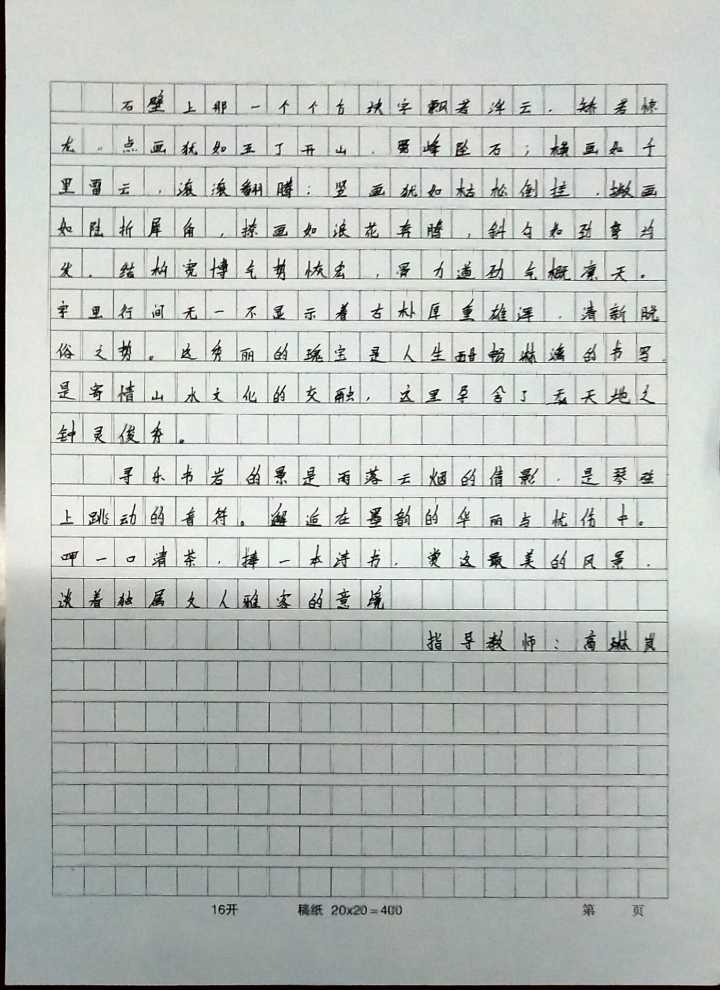 石壁上那一个个方块字飘若浮云，矫若惊
龙。点画犹如五丁开山，男峰坠石；横画如千
里雷云，滚滚翻腾；竖画犹如枯松倒挂，撇画
如陆折犀角，捺画如浪花奔腾，斜勾如劲弩均
发。结构宽博气势恢宏，骨力遒劲气概凛天。
字里行间无一不显示着古朴厚重雄浑，清新脱
俗之势。这秀丽的瑰宝是人生酣畅淋漓的书写，
是寄情山水文化的交融，这里孕含了天地之
钟灵俊秀。
寻乐书岩的景是雨落云烟的倩影，是琴弦
上跳动的音符。邂逅在墨韵的华丽与忧伤中。
呷一口清茶，捧一本诗书，赏这最美的风景，
谈着独属文人雅客的意境
指导教师：高琳岚
16开 稿纸 20x20=400 第 页